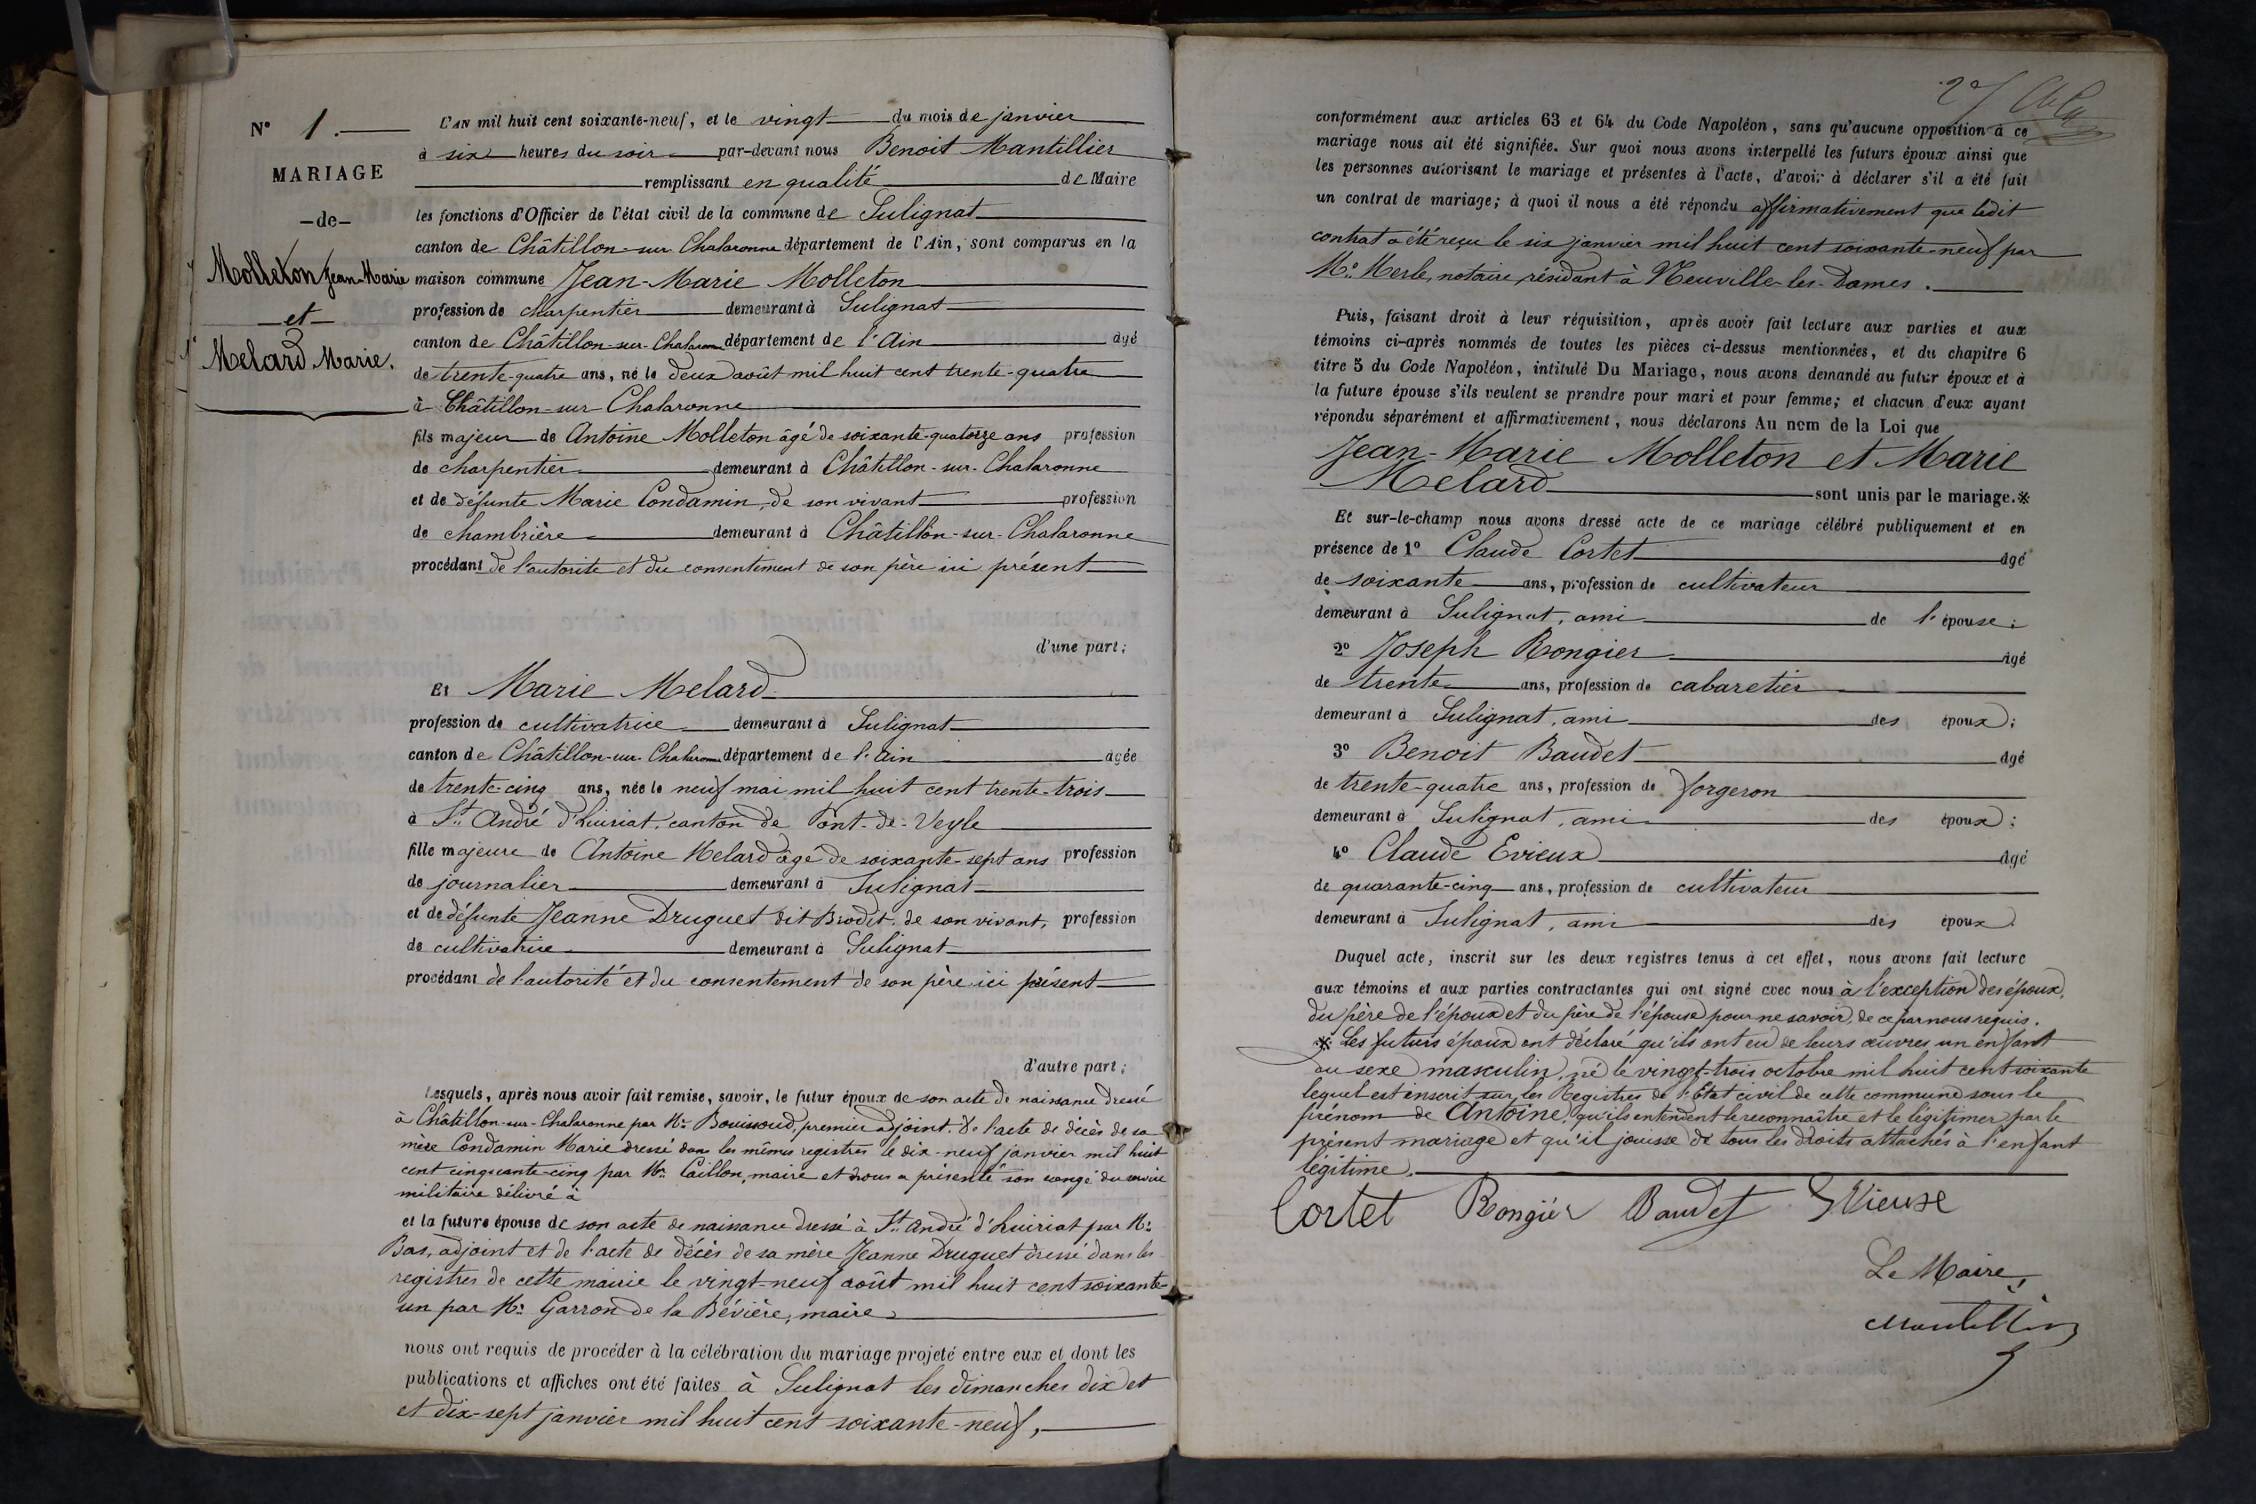 N° 1.
MARIAGE
-de-
Molleton Jean-Marie
et
Melard Marie.
L'AN mil huit cent soixante-neuf, et le vingt du mois de janvier
à six heures du soir par-devant nous Benoit Mantillier
remplissant en qualité de Maire
les fonctions d'Officier de l'état civil de la commune de Sulignat
canton de Châtillon-sur-Chalaronne département de l'Ain, sont comparus en la
maison commune Jean-Marie Molleton
profession de charpentier demeurant à Sulignat
canton de Châtillon-sur-Chalaronne département de l'Ain âgé
de trente-quatre ans, né le deux août mil huit cent trente-quatre
à Châtillon-sur-Chalaronne
fils majeur de Antoine Molleton âgé de soixante-quatorze ans profession
de charpentier demeurant à Châtillon-sur-Chalaronne
et de défunte Marie Condamin, de son vivant profession
de chambrière demeurant à Châtillon-sur-Chalaronne
procédant de l'autorité et du consentement de son père ici présent
d'une part;
Et Marie Melard
profession de cultivatrice demeurant à Sulignat
canton de Châtillon-sur-Chalaronne département de l'Ain âgée
de trente-cinq ans, née le neuf mai mil huit cent trente-trois
à St. André d'Huiriat, canton de Pont-de-Veyle
fille majeure de Antoine Melard âgé de soixante-sept ans profession
de journalier demeurant à Sulignat
et de défunte Jeanne Druguet dit Brodit, de son vivant, profession
de cultivatrice demeurant à Sulignat
procédant de l'autorité et du consentement de son père ici présent
d'autre part;
Lesquels, après nous avoir fait remise, savoir, le futur époux de son acte de naissance dressé
à Châtillon-sur-Chalaronne par Mr. Bouissoud, premier adjoint. De l'acte de décès de sa
mère Condamin Marie dressé dans les mêmes registres le dix-neuf janvier mil huit
cent cinquante-cinq par Mr. Caillon, maire et nous a présenté son congé du service
militaire délivré à
et la future épouse de son acte de naissance dressé à St. André d'Huiriat par Mr.
Bas, adjoint et de l'acte de décès de sa mère Jeanne Druguet dressé dans les
registres de cette mairie le vingt-neuf août mil huit cent soixante-
un par Mr. Garron de la Bévière, maire
nous ont requis de procéder à la célébration du mariage projeté entre eux et dont les
publications et affiches ont été faites à Sulignat les dimanches dix et
et dix-sept janvier mil huit cent soixante-neuf,
27
conformément aux articles 63 et 64 du Code Napoléon, sans qu'aucune opposition à ce
mariage nous ait été signifiée. Sur quoi nous avons interpellé les futurs époux ainsi que
les personnes autorisant le mariage et présentes à l'acte, d'avoir à déclarer s'il a été fait
un contrat de mariage; à quoi il nous a été répondu affirmativement que ledit
contrat a été reçu le six janvier mil huit cent soixante-neuf par
Me. Merle, notaire, résidant à Neuville-les-Dames.
Puis, faisant droit à leur réquisition, après avoir fait lecture aux parties et aux
témoins ci-après nommés de toutes les pièces ci-dessus mentionnées, et du chapitre 6
titre 5 du Code Napoléon, intitulé Du Mariage, nous avons demandé au futur époux et à
la future épouse s'ils veulent se prendre pour mari et pour femme; et chacun d'eux ayant
répondu séparément et affirmativement, nous déclarons Au nom de la Loi que
Jean-Marie Molleton et Marie
Melard sont unis par le mariage.※
Et sur-le-champ nous avons dressé acte de ce mariage célébré publiquement et en
présence de 1° Claude Cortet âgé
de soixante ans, profession de cultivateur
demeurant à Sulignat, ami de l'épouse;
2° Joseph Rongier âgé
de trente ans, profession de cabaretier
demeurant à Sulignat, ami des époux;
3° Benoit Baudet âgé
de trente-quatre ans, profession de forgeron
demeurant à Sulignat, ami des époux;
4° Claude Evieux âgé
de quarante-cinq ans, profession de cultivateur
demeurant à Sulignat, ami des époux
Duquel acte, inscrit sur les deux registres tenus à cet effet, nous avons fait lecture
aux témoins et aux parties contractantes qui ont signé avec nous à l'exception des époux,
du père de l'époux et du père de l'épouse pour ne savoir, de ce par nous requis.
※ Les futurs époux ont déclaré qu'ils ont eu de leurs œuvres un enfant
du sexe masculin, né le vingt-trois octobre mil huit cent soixante
lequel est inscrit sur les Registres de l'Etat civil de cette commune sous le
prénom de Antoine, qu'ils entendent le reconnaître et le légitimer par le
présent mariage et qu'il jouisse de tous les droits attachés à l'enfant
légitime.
Cortet Rongier Baudet Evieux
Le Maire,
Mantillier